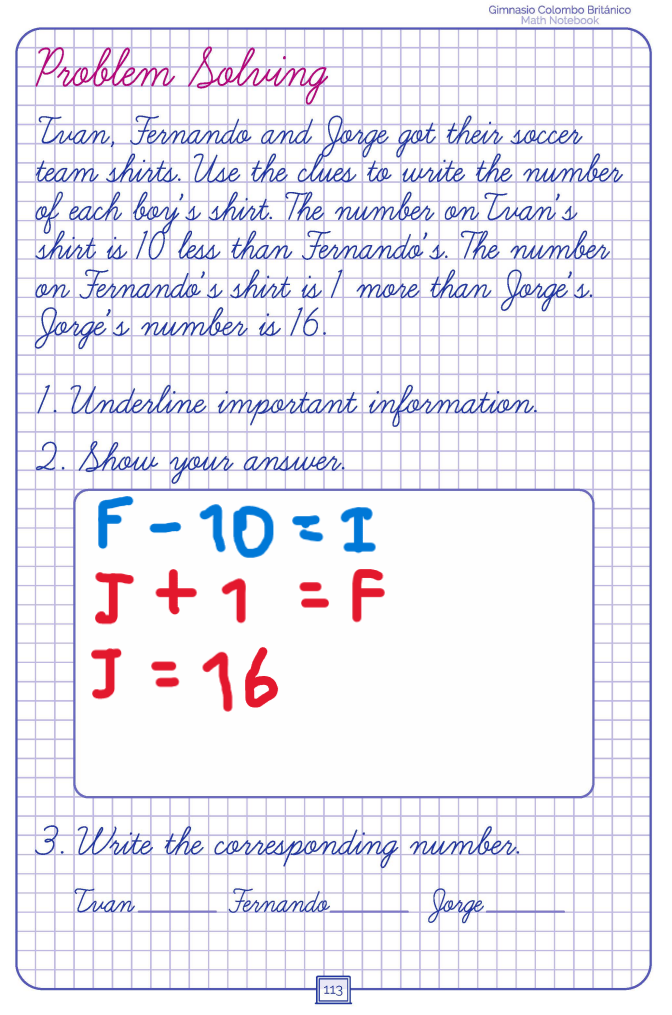 Gimnasio Colombo Británico
Math Notebook
Problem Solving
Ivan, Fernando and Jorge got their soccer
team shirts. Use the clues to write the number
of each boy's shirt. The number on Ivan's
shirt is 10 less than Fernando's. The number
on Fernando's shirt is 1 more than Jorge's.
Jorge's number is 16.
1. Underline important information.
2. Show your answer.
F - 10 = I
J + 1 = F
J = 16
3. Write the corresponding number.
Ivan______ Fernando______ Jorge______
113